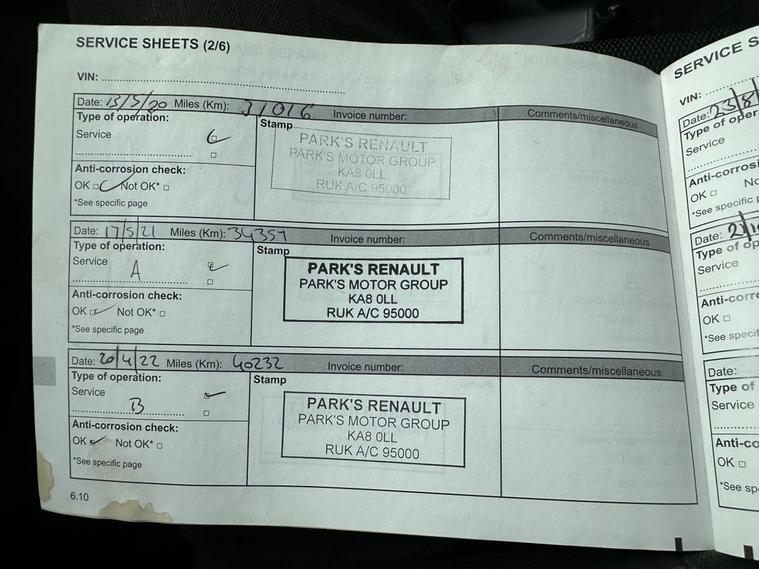 SERVICE SHEETS (2/6)
VIN:
Date: 13/5/20 Miles (Km): 31016 Invoice number: Comments/miscellaneous
Type of operation:
Service
Stamp
PARK'S RENAULT
PARK'S MOTOR GROUP
KA8 0LL
RUK A/C 95000
Anti-corrosion check:
OK Not OK*
*See specific page
Date: 17/5/21 Miles (Km): 34357 Invoice number: Comments/miscellaneous
Type of operation:
Service
A
Stamp
PARK'S RENAULT
PARK'S MOTOR GROUP
KA8 0LL
RUK A/C 95000
Anti-corrosion check:
OK Not OK*
*See specific page
Date: 20/4/22 Miles (Km): 40232 Invoice number: Comments/miscellaneous
Type of operation:
Service
B
Stamp
PARK'S RENAULT
PARK'S MOTOR GROUP
KA8 0LL
RUK A/C 95000
Anti-corrosion check:
OK Not OK*
*See specific page
6.10
SERVICE S
VIN:
Date: 23/8/
Type of oper
Service
Anti-corrosi
OK No
*See specific p
Date:
Type of op
Service
Anti-corro
OK
*See specif
Date:
Type of
Service
Anti-co
OK
*See sp